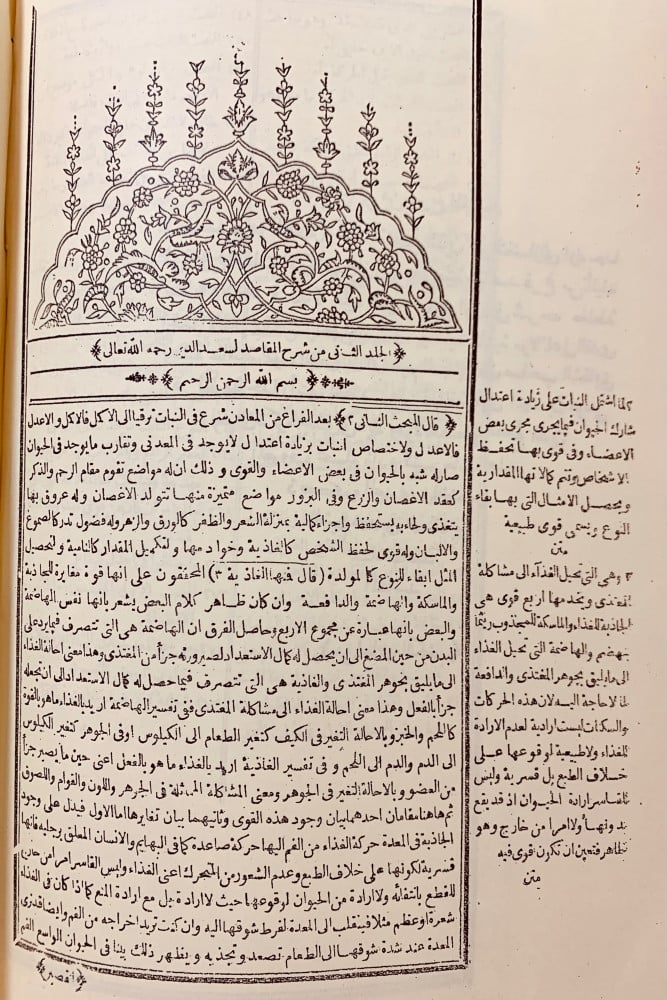 الجلد الثانى من شرح المقاصد لسعد الدين رحمه الله تعالى
بسم الله الرحمن الرحيم
﴿ قال المبحث الثانى ٢ ﴾ بعد الفراغ من المعادن شرع فى النبات ترقيا الى الاكمل فالاكمل والاعدل
فالاعدل ولاختصاص النبات بزيادة اعتدال لايوجد فى المعدنى وتقارب مايوجد فى الحيوان
صارله شبه بالحيوان فى بعض الاعضاء والقوى و ذلك ان له مواضع تقوم مقام الرحم والذكر
كعقد الاغصان والزرع وفى البزور مواضع متميزة منها تتولد الاغصان وله عروق بها
يتغذى ولحاء به يستحفظ واجزاء كمالية بمنزلة الشعر والظفر كالورق والزهر وله فضول تدر كالصموغ
والالبان وله قوى لحفظ الشخص كالغاذية وخوادمها ولتكميل المقدار كالنامية ولتحصيل
المثل ابقاء للنوع كالمولدة (قال فنها الغاذية ٣) المحققون على انها قوة مغايرة للجاذبة
والماسكة والهاضمة والدافعة وان كان ظاهر كلام البعض يشعر بانها نفس الهاضمة
والبعض بانها عبارة عن مجموع الاربع وحاصل الفرق ان الهاضمة هى التى تتصرف فيما يرد على
البدن من حين المضغ الى ان يحصل له كمال الاستعداد لصيرورته جزأ من المغتذى وهذا معنى احالة الغذاء
الى مايليق بجوهر المغتذى والغاذية هى التى تتصرف فيما حصل له كمال الاستعداد الى ان يجعله
جزأ بالفعل وهذا معنى احالة الغذاء الى مشاكلة المغتذى فنى تفسير الهاضمة اريد بالغذاء ماهو بالقوة
كاللحم والخبز و بالاحالة التغير فى الكيف كتغير الطعام الى الكيلوس اوفى الجوهر كتغير الكيلوس
الى الدم والدم الى اللحم و فى تفسير الغاذية اريد بالغذاء ماهو بالفعل اعنى حين مايصير جزأ
من العضو و بالاحالة التغير فى الجوهر ومعنى المشاكلة المماثلة فى الجوهر واللون والقوام واللصوق
ثم هاهنا مقامان احدهما بيان وجود هذه القوى وثانيهما بيان تغايرها اما الاول فيدل على وجود
الجاذبة فى المعدة حركة الغذاء من الفم اليها حركة صاعدة كما فى البهايم والانسان المعلق برجليه فانها
قسرية لكونها على خلاف الطبع وعدم الشعور من المتحرك اعنى الغذاء وليس القاسر امرا من خارج
للقطع بانتفائه ولا ارادة من الحيوان لوقوعها حيث لا ارادة بل مع ارادة المنع كما اذا كان فى الغذاء
شعرة او عظم مثلا فينقلب الى المعدة لفرط شوقها اليه وان كنت تريد اخراجه من الفم وايضا قد نرى
المعدة عند شدة شوقها الى الطعام تصعد وتجذبه و يظهر ذلك بينا فى الحيوان الواسع الفم
القصير
٢ لما اشتمل النبات على زيادة اعتدال
شارك الحيوان فيما يجرى مجرى بعض
الاعضاء وفى قوى بها تحفظ
الاشخاص وتتم كمالاتها المقدارية
ويحصل الامثال التى بها بقاء
النوع ويسمى قوى طبيعية
متن
٣ وهى التى تحيل الغذآء الى مشاكلة
المغتذى ويخدمها اربع قوى هى
الجاذبة للغذاء والماسكة للمجذوب ريثما
ينهضم والهاضمة التى تحيل الغذاء
الى مايليق بجوهر المغتذى والدافعة
لما لاحاجة اليه لان هذه الحركات
والسكنات ليست ارادية لعدم الارادة
للغذاء ولا طبيعية لوقوعها على
خلاف الطبع بل قسرية وليس
القاسر ارادة الحيوان اذ قد يقع
بدونها ولا امرا من خارج وهو
ظاهر فتعين ان تكون قوى فيه
متن